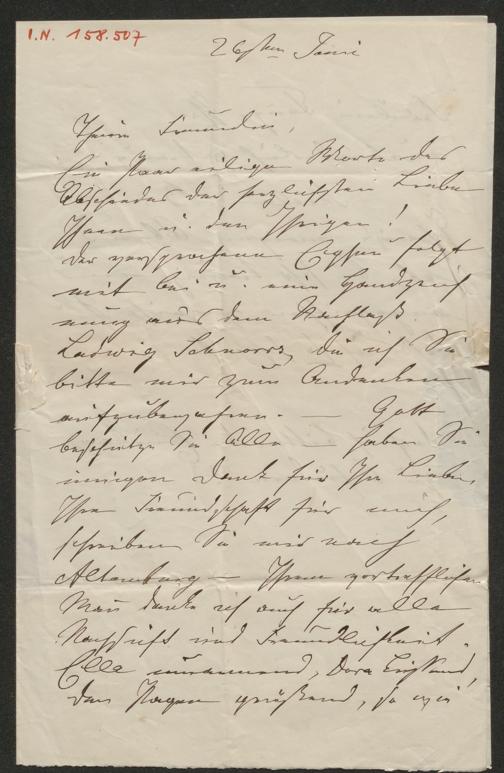 I.N. 158.507
26sten Juni
Theure Freundin,
Ein Paar eilige Worte des
Abschiedes der herzlichsten Liebe
Ihnen u. den Ihrigen!
der versprochene folgt
mit bei u. eine Handzeich
nung aus dem Nachlaß
Ludwig Schnorrs, die ich Sie
bitte mir zum Andenken
aufzubewahren. — Gott
beschütze Sie Alle — haben Sie
innigen Dank für Ihre Liebe,
Ihre Freundschaft für mich,
schreiben Sie mir nach
Altenburg — Ihrem vortrefflichen
Man danke ich auch für alle
Nachsicht und Freundlichkeit.
Ella umarmend, Dora küssend,
den Pagen grüßend, so wie